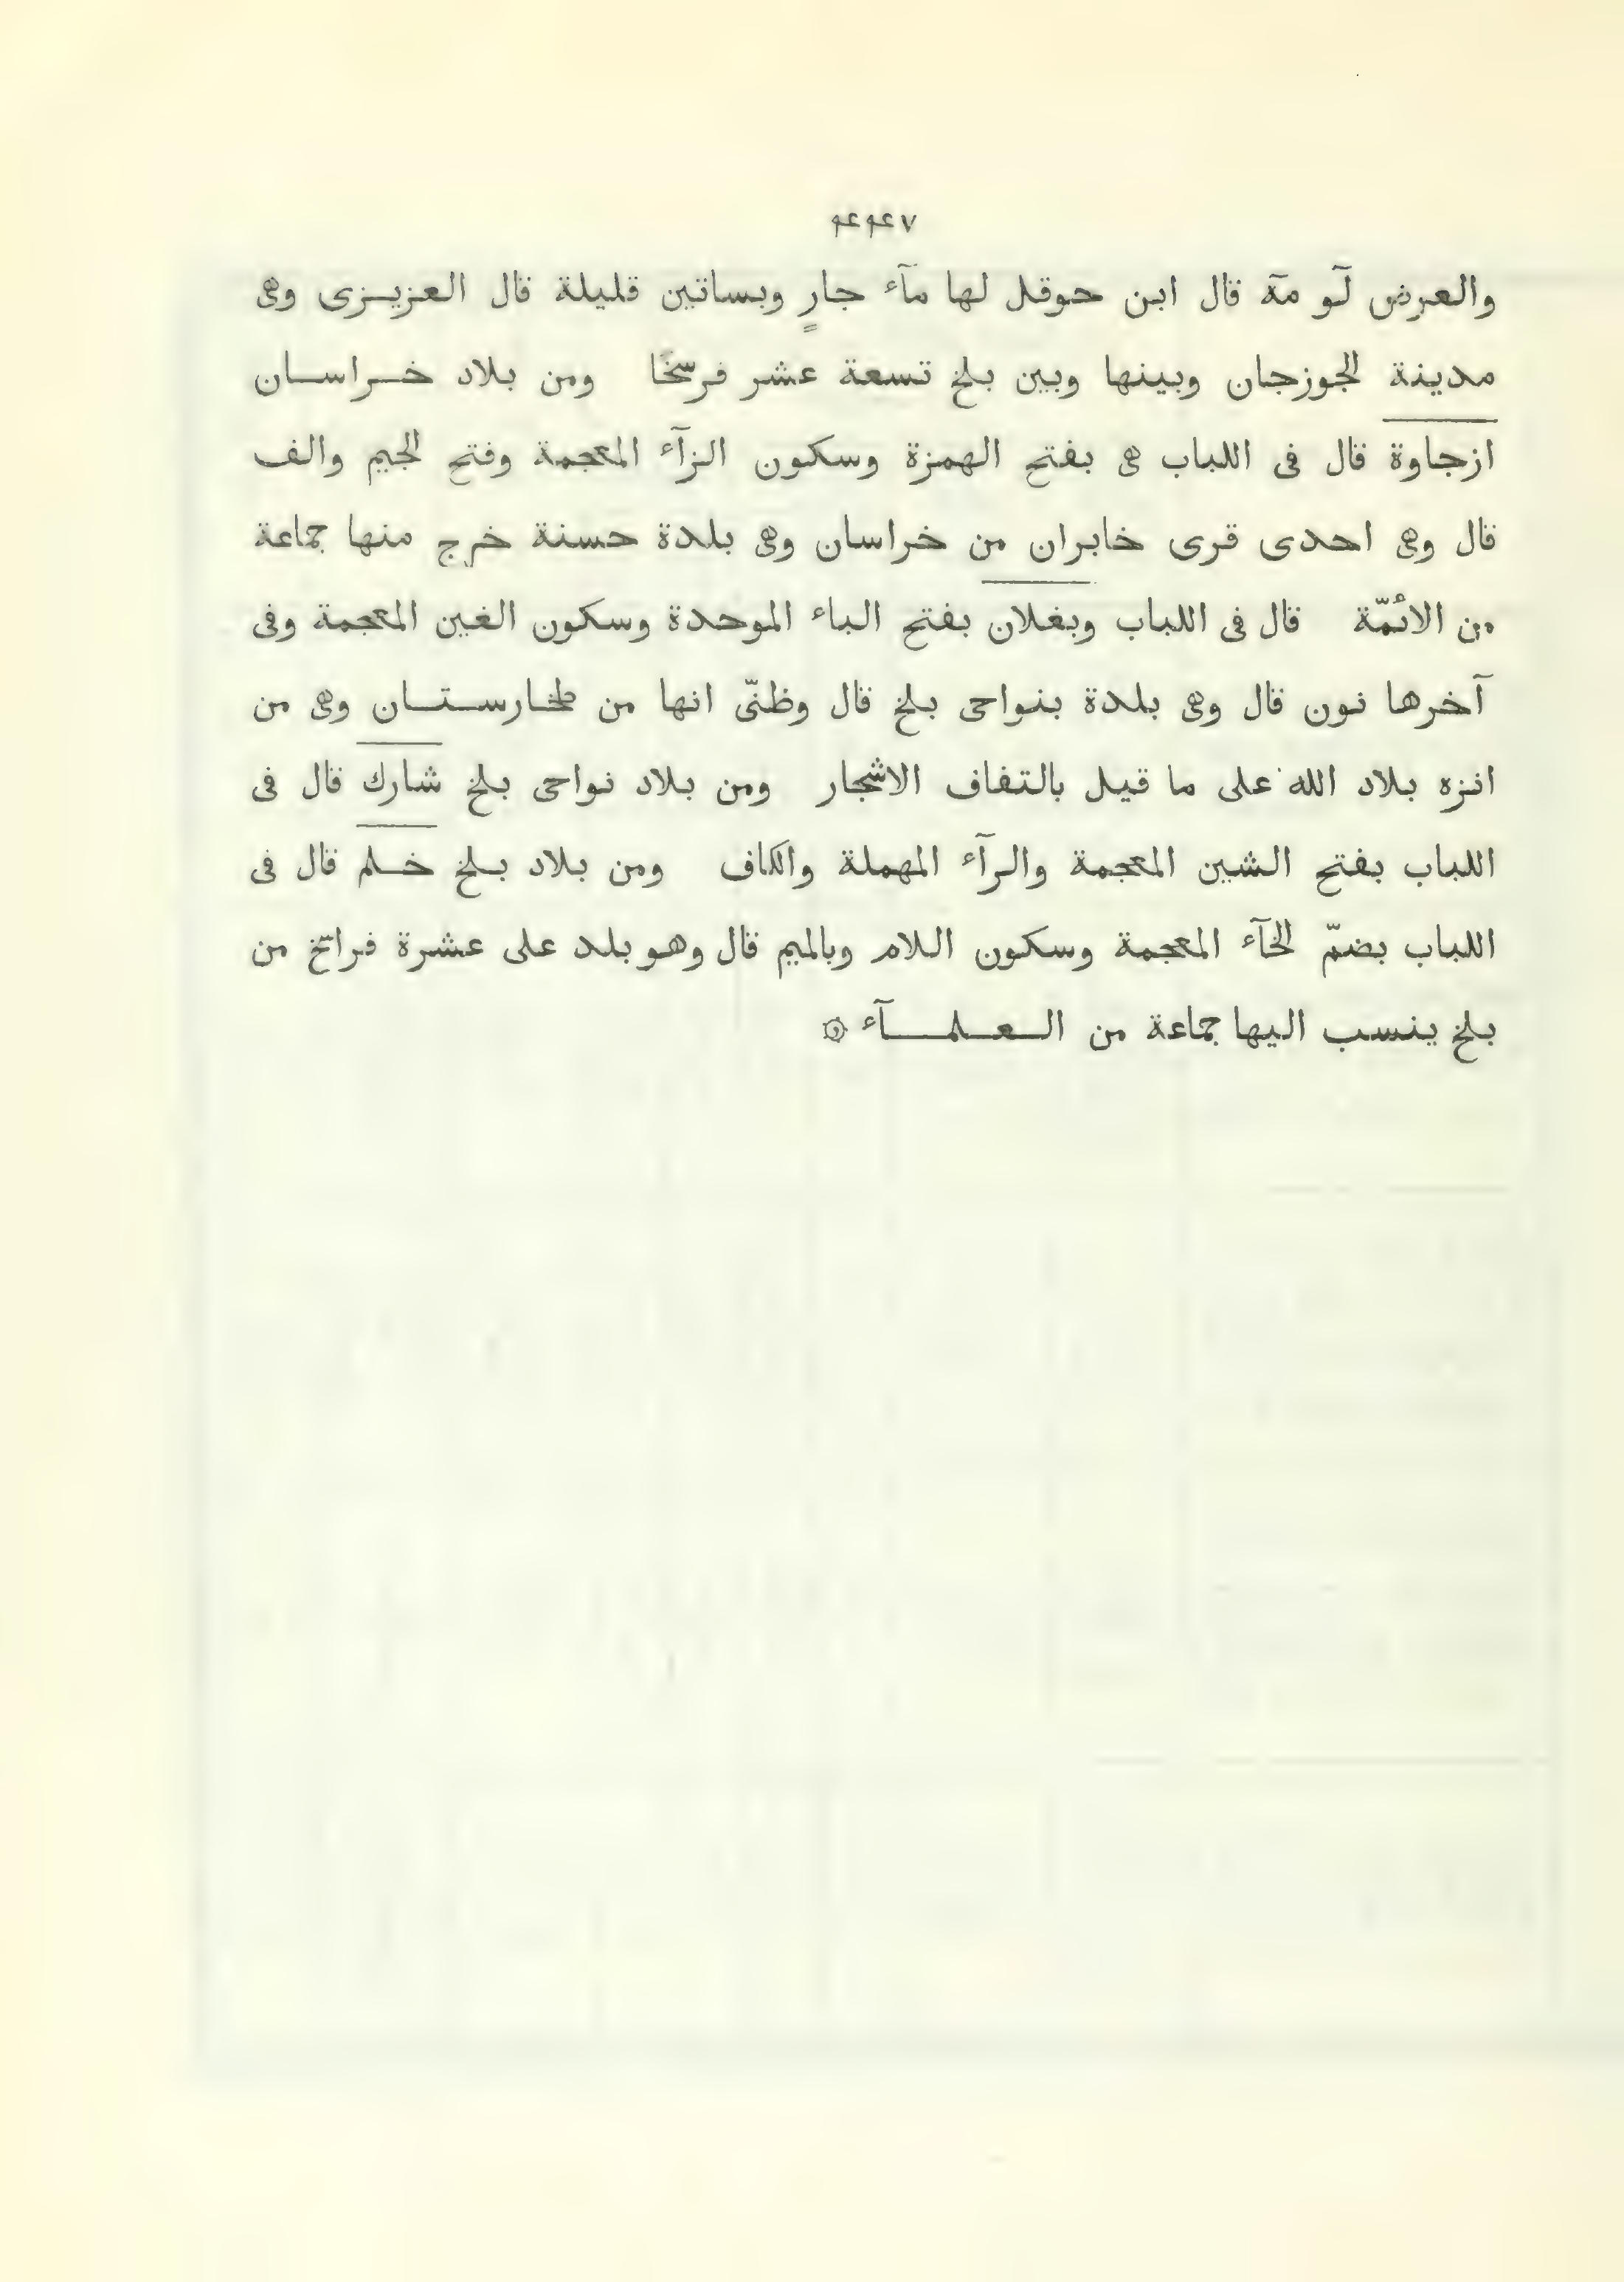 ۴۴۷
والعرض لَو مَه قال ابن حوقل لها مآء جارٍ وبساتين قليلة قال العزيزى وهى
مدينة الجوزجان وبينها وبين بلخ تسعة عشر فرسخًا ومن بلاد خراسان
ازجاوة قال فى اللباب هى بفتح الهمزة وسكون الزآء المعجمة وفتح الجيم والف
قال وهى احدى قرى خابران من خراسان وهى بلدة حسنة خرج منها جماعة
من الائمّة قال فى اللباب وبغلان بفتح الباء الموحدة وسكون الغين المعجمة وفى
آخرها نون قال وهى بلدة بنواحى بلخ قال وظنّى انها من طخارستان وهى من
انزه بلاد الله على ما قيل بالتفاف الاشجار ومن بلاد نواحى بلخ شارك قال فى
اللباب بفتح الشين المعجمة والرآء المهملة والكاف ومن بلاد بلخ خلم قال فى
اللباب بضمّ الخآء المعجمة وسكون اللام وبالميم قال وهو بلد على عشرة فراسخ من
بلخ ينسب اليها جماعة من العلمآء